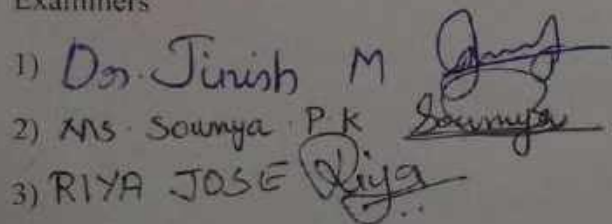 Examiners
1) Dr. Jinish M
2) Ms. Soumya P K Soumya
3) RIYA JOSE Riya